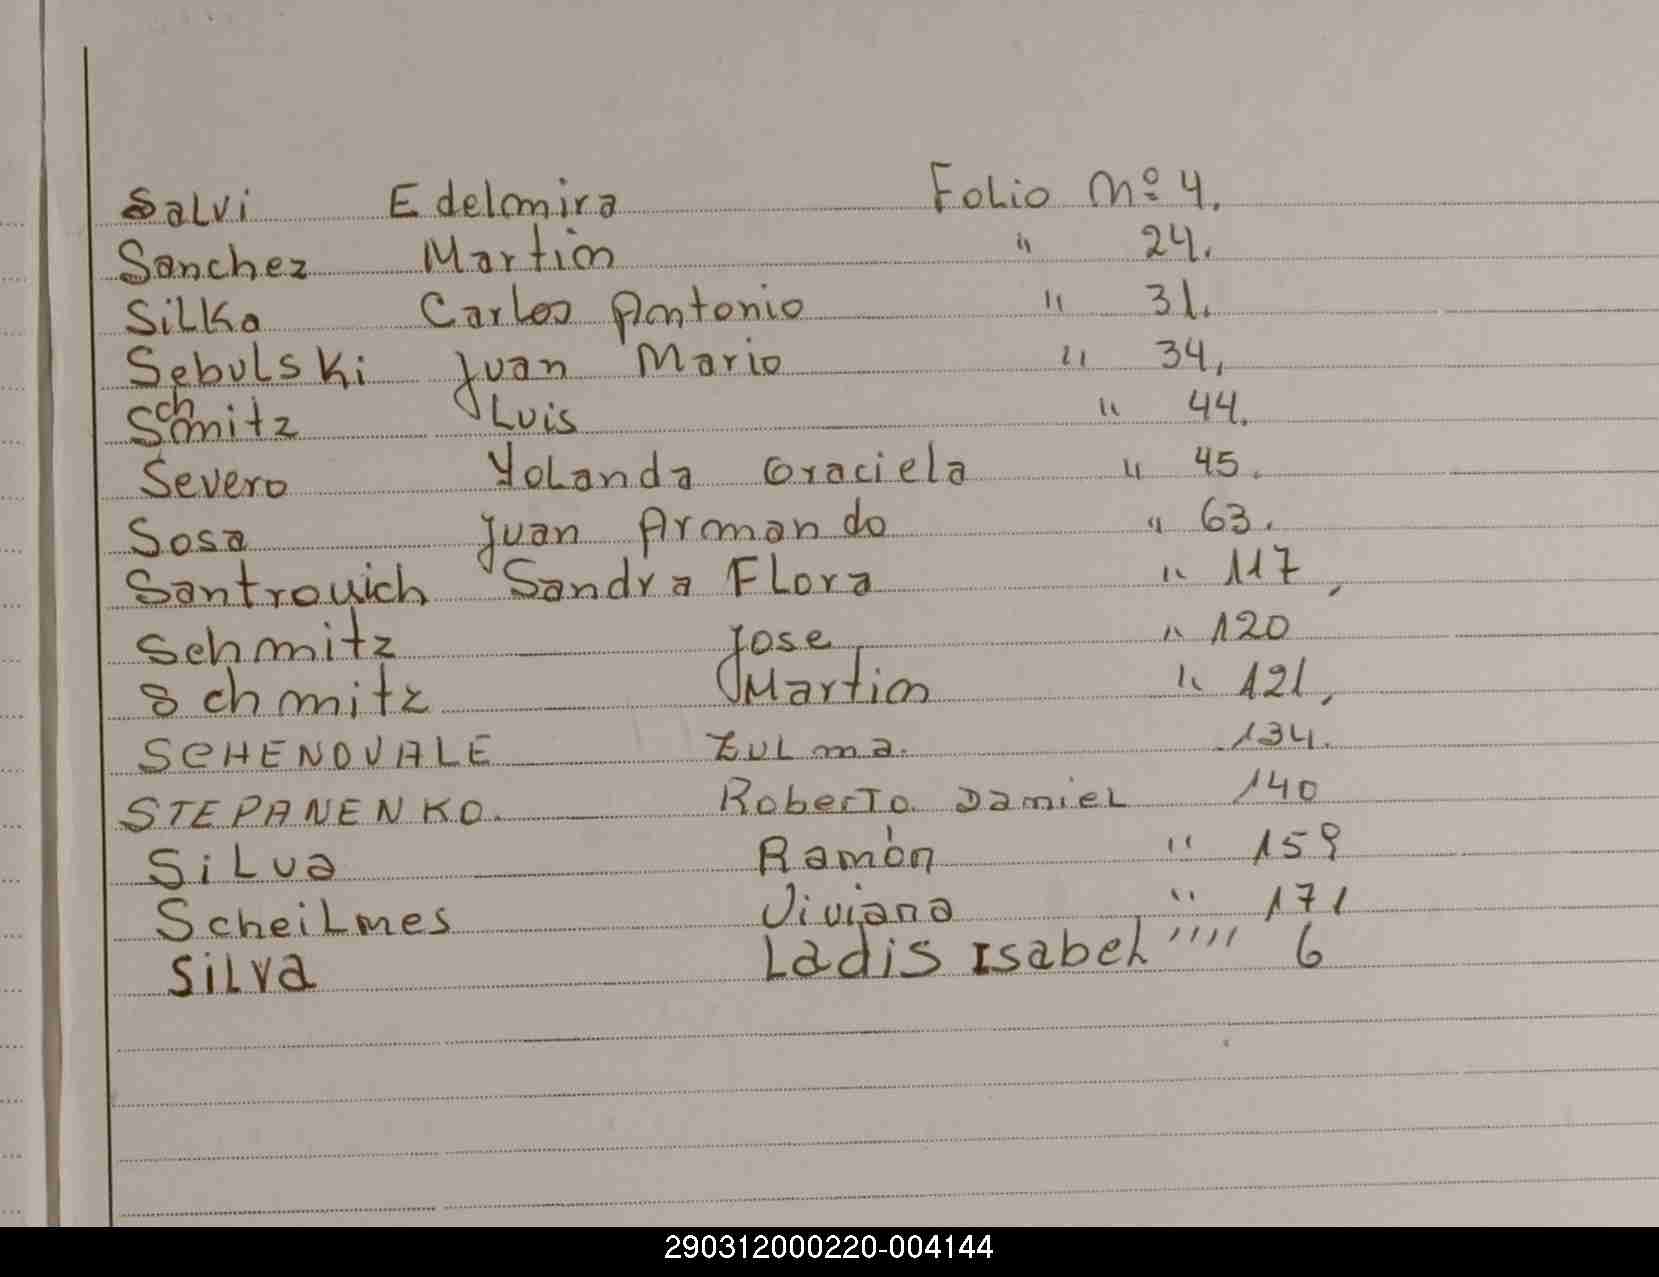 Salvi Edelmira Folio Nº 4.
Sanchez Martin " 24.
Silka Carlos Antonio " 31.
Sebulski Juan Mario " 34,
Schmitz Luis " 44.
Severo Yolanda Graciela " 45.
Sosa Juan Armando " 63.
Santrovich Sandra Flora " 117,
Schmitz Jose " 120
Schmitz Martin " 121,
SCHENOVALE Zulma. 134.
STEPANENKO. Roberto Daniel 140
Silva Ramón " 159
Scheilmes Viviana " 171
Silva Ladis Isabel """" 6
290312000220-004144